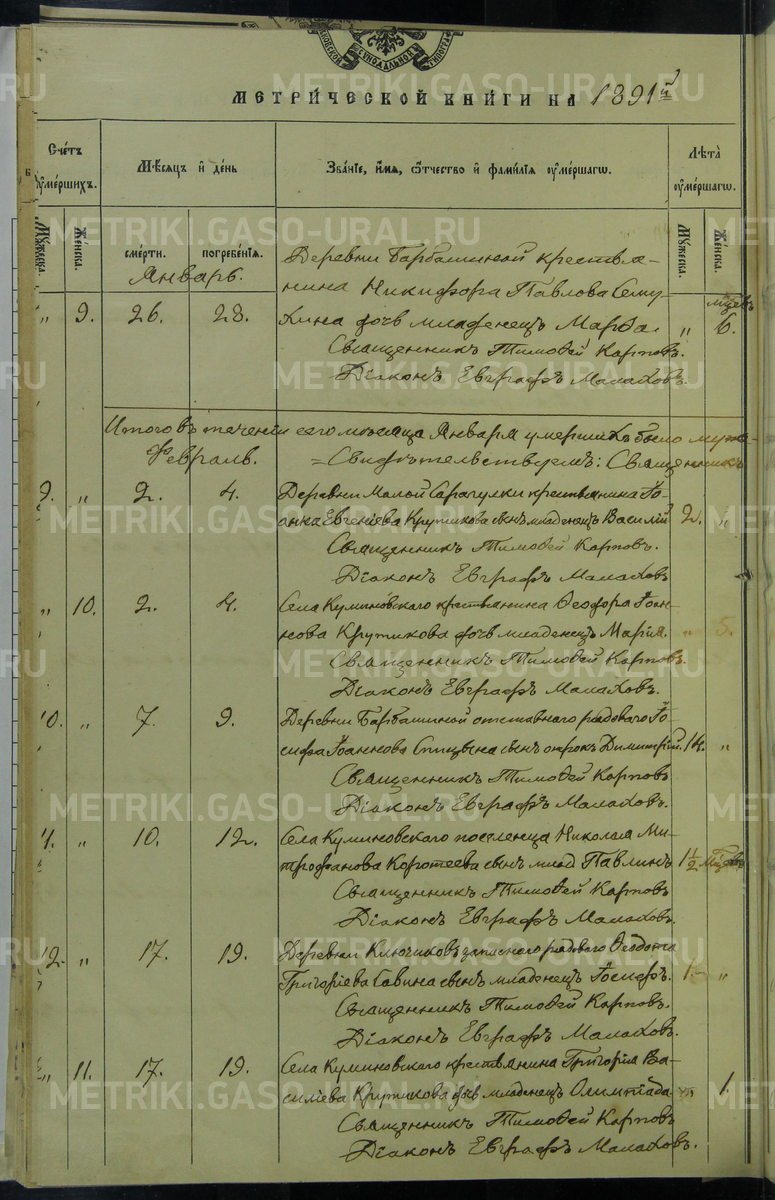 МОСКОВСКОЙ СѴНОДАЛЬНОЙ ТИПОГРАФ
МЕТРИ́ЧЕСКОЙ КНИ́ГИ НА 1891й
Счетъ ᲂумершихъ.
Мѣсяцъ и день
Званіе, имя, Ѿчество и фамилія ᲂумершагѡ.
Лѣта ᲂумершагѡ.
Мужеска.
Женска.
смерти.
погребенія.
Мужеска.
Женска.
Январь.
Деревни Барбашиной крестья-
нина Никифора Павлова Сему-
„ 9. 26. 28. хина дочь младенецъ Марѳа. „ 6. мцевъ
Священникъ Тимофей Карповъ.
Діаконъ Евграфъ Малаховъ.
Итого въ теченіи сего мѣсяца Января умершихъ было муже-
Февраль. = Свидѣтельствуемъ: Священникъ
9. „ 2. 4. Деревни Малой Сарагулки крестьянина Іо-
анна Евгеніева Крутикова сынъ младенецъ Василій 2. „
Священникъ Тимофей Карповъ.
Діаконъ Евграфъ Малаховъ
„ 10. 2. 4. Села Куминовскаго крестьянина Ѳеодора Іоан-
нова Крутикова дочь младенецъ Марія. „ 5.
Священникъ Тимофей Карповъ.
Діаконъ Евграфъ Малаховъ.
10. „ 7. 9. Деревни Барбашиной отставнаго рядоваго Іо-
сифа Іоаннова Спицына сынъ отрокъ Димитрій. 14. „
Священникъ Тимофей Карповъ
Діаконъ Евграфъ Малаховъ.
„ 10. 12. Села Куминовскаго поселенца Николая Ми-
трофанова Коротеева сынъ млад Павлинъ 1½ мцевъ
Священникъ Тимофей Карповъ
Діаконъ Евграфъ Малаховъ.
12. „ 17. 19. Деревни Ключиковъ запаснаго рядоваго Ѳеодота
Григоріева Савина сынъ младенецъ Іосифъ. 1 „
Священникъ Тимофей Карповъ.
Діаконъ Евграфъ Малаховъ.
„ 11. 17. 19. Села Куминовскаго крестьянина Григорія Ва-
силіева Крутикова дочь младенецъ Олимпіада „ 1.
Священникъ Тимофей Карповъ
Діаконъ Евграфъ Малаховъ.
METRIKI.GASO-URAL.RU